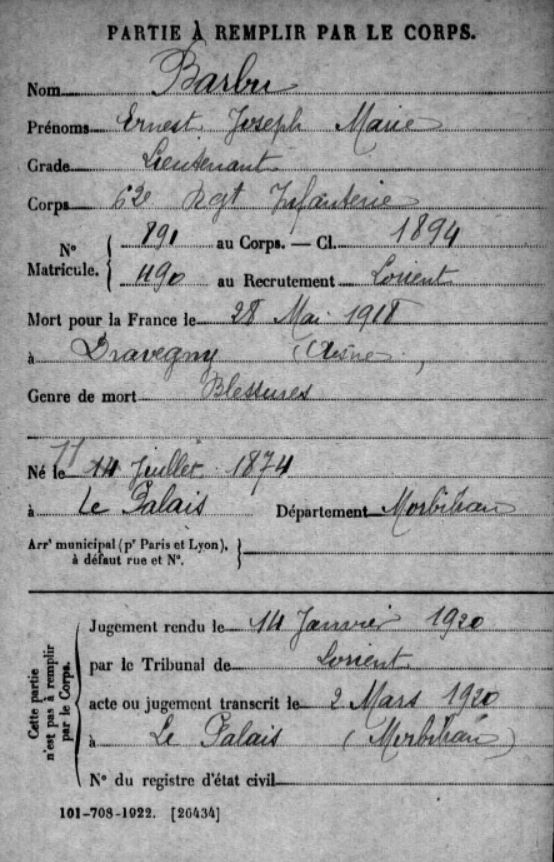 PARTIE À REMPLIR PAR LE CORPS.
Nom Barbu
Prénoms Ernest Joseph Marie
Grade Lieutenant
Corps 62e Regt Infanterie
N° Matricule. { 891 au Corps. — Cl. 1894
490 au Recrutement Lorient
Mort pour la France le 28 Mai 1918
à Dravegny (Aisne)
Genre de mort Blessures
Né le 11 14 Juillet 1874
à Le Palais Département Morbihan
Arr' municipal (pr Paris et Lyon), à défaut rue et N°. }
Cette partie n'est pas à remplir par le Corps.
Jugement rendu le 14 Janvier 1920
par le Tribunal de Lorient
acte ou jugement transcrit le 2 Mars 1920
à Le Palais (Morbihan)
N° du registre d'état civil
101-708-1922. [26434]